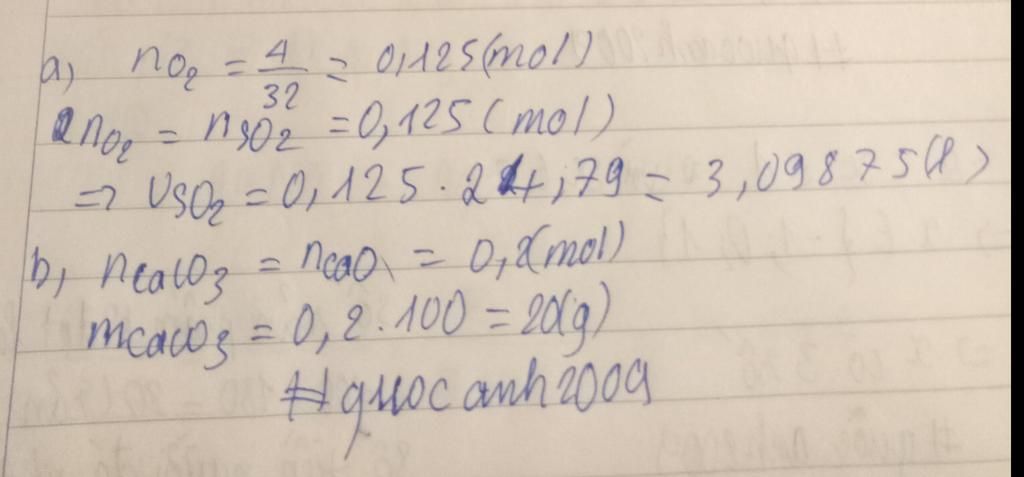 a, nO2 = 4/32 = 0,125(mol)
nO2 = nSO2 = 0,125(mol)
=> VSO2 = 0,125 . 24,79 = 3,09875(l)
b, nCaCO3 = nCaO = 0,2(mol)
mCaCO3 = 0,2 . 100 = 20(g)
#quocanh2009